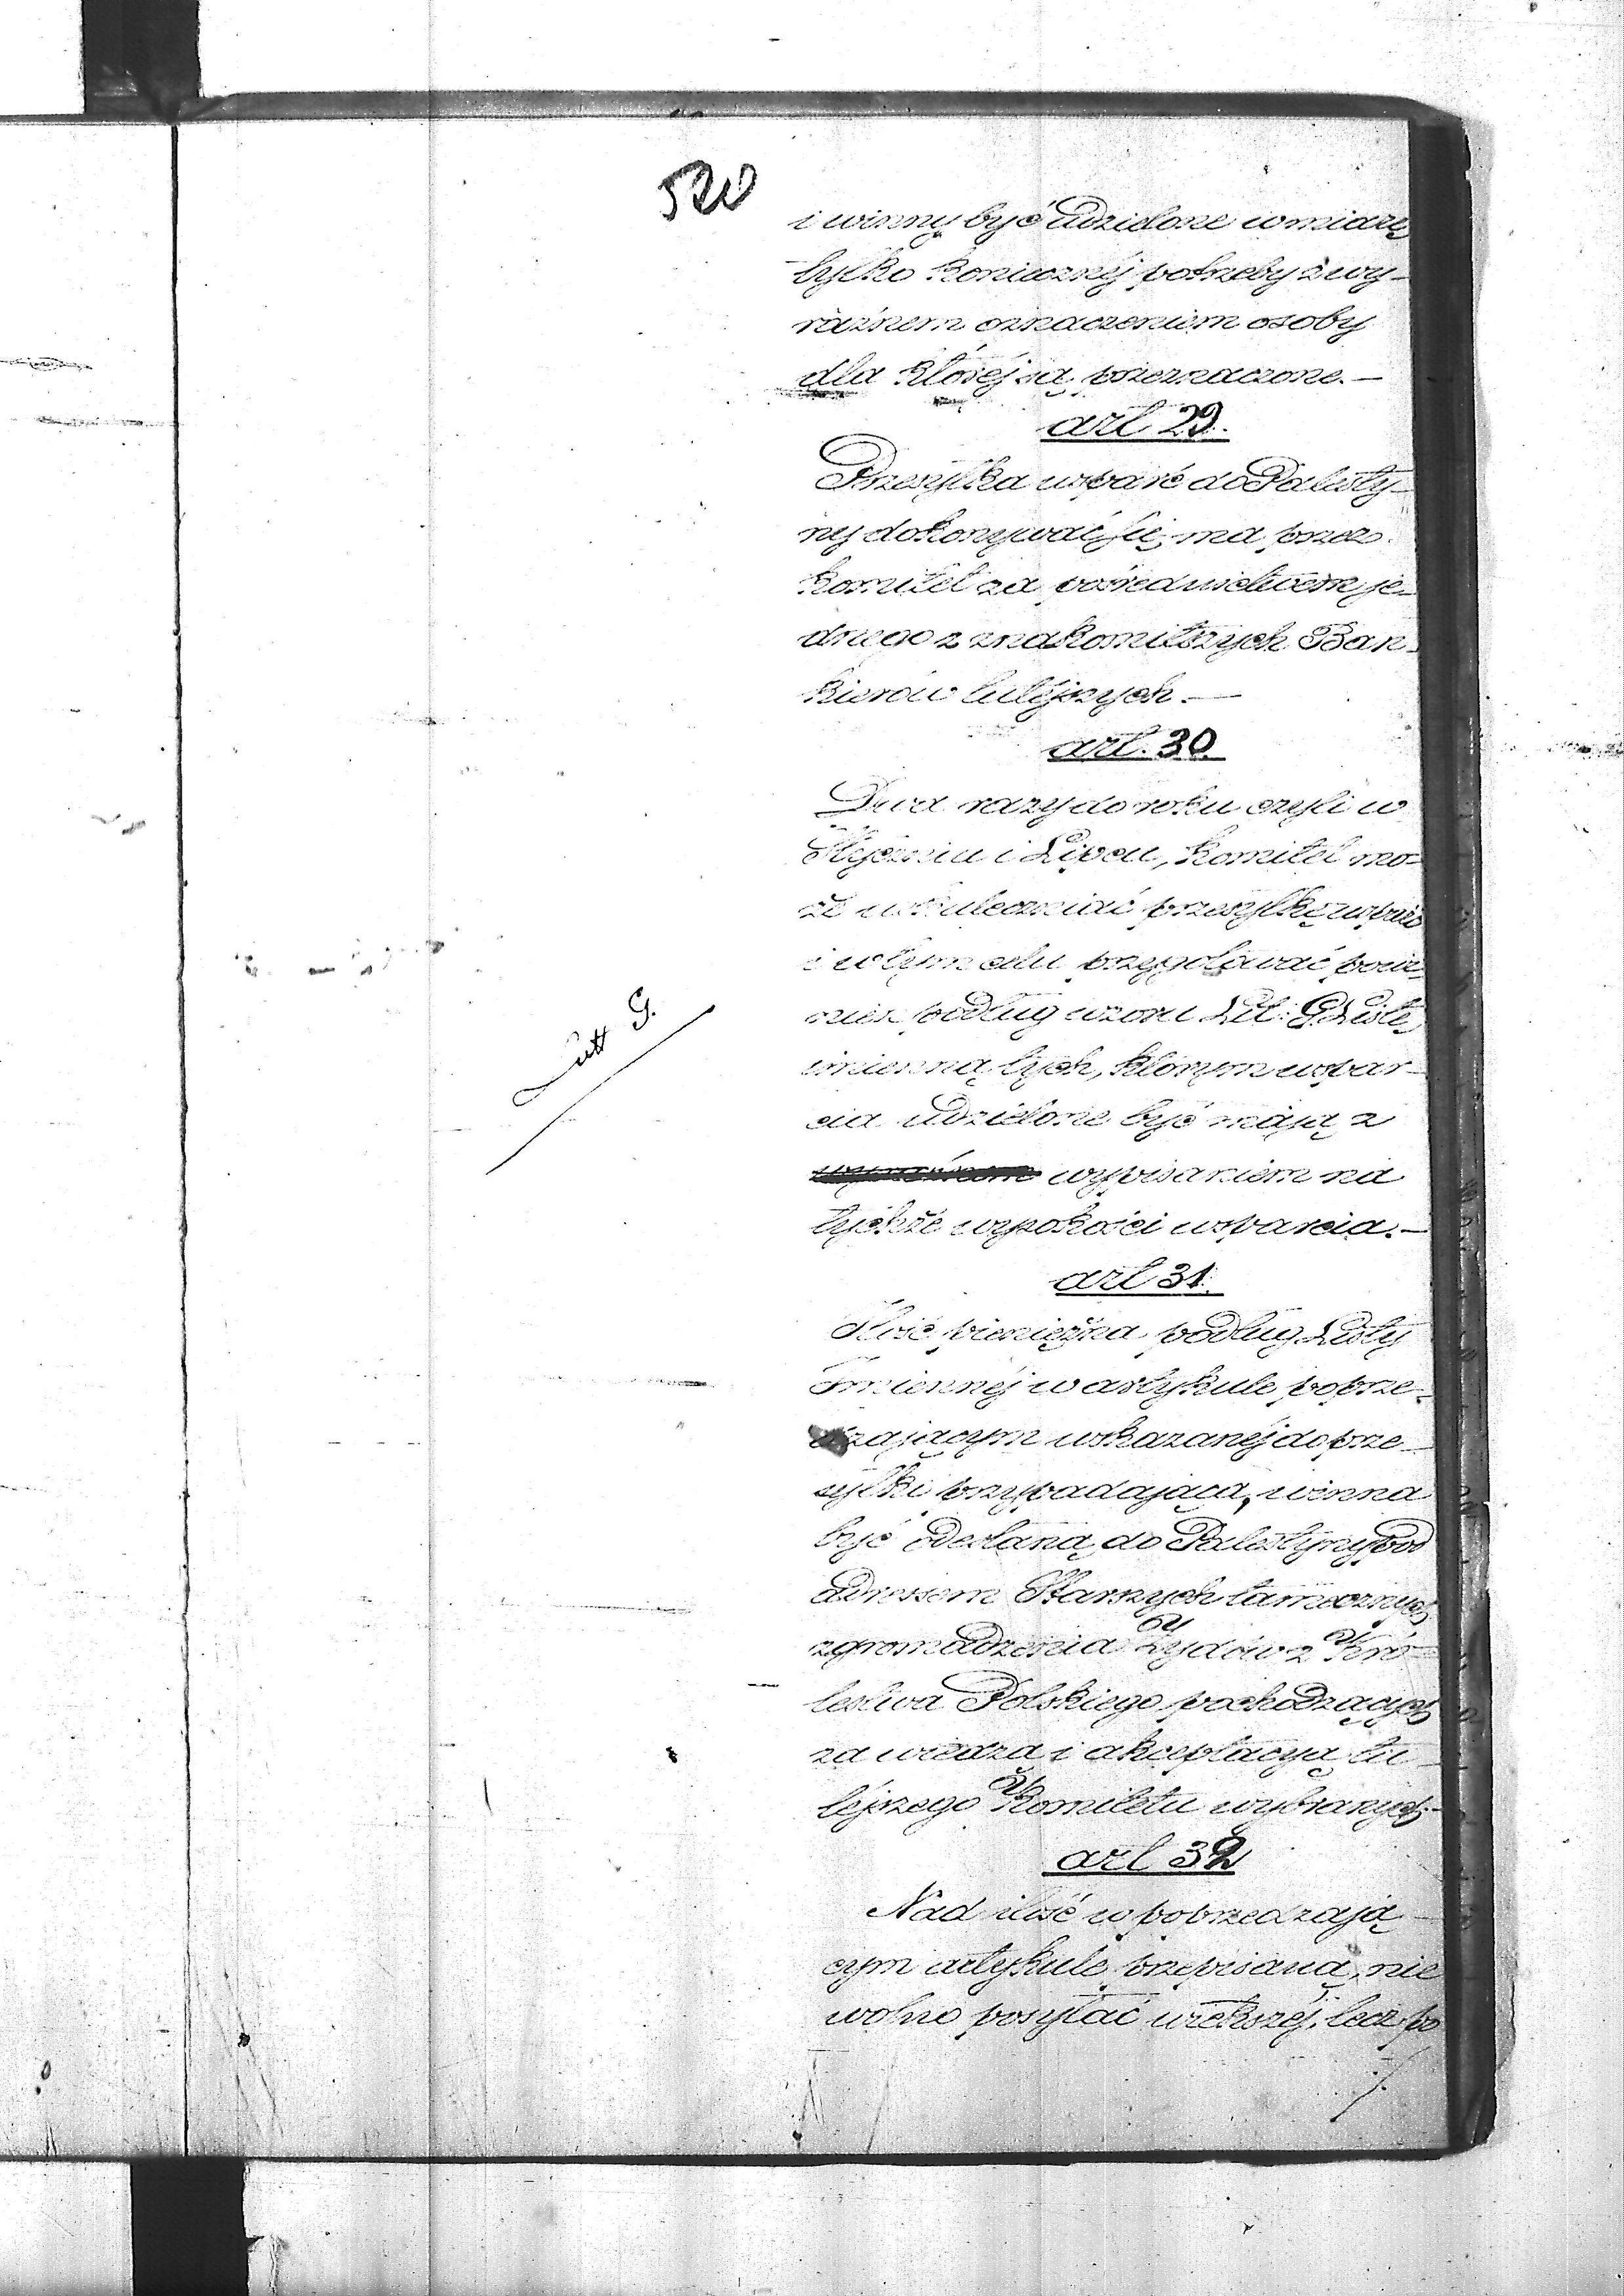 520
i winny być udzielone w miarę
tylko konicznéj potrzeby z wy-
raźnem oznaczeniem osoby
dla któréj są przeznaczone.—
art 29.
Przesyłka wsparć do Palesty-
ny dokonywać się ma przez
Komitet za pośrednictwem je-
dnego z znakomitszych Ban-
kierów tutéjszych.—
art. 30.
Dwa razy do roku czyli w
Styczniu i Lipcu, Komitet mo-
że uskuteczniać przesyłkę wsparć
i w tym celu przygotować powi-
nien podług wzoru Lit: G Listę
Litt G.
imienną tych, którym wspar-
cia udzielone być mają z
wypisaniem na
tychże wysokości wsparcia.—
art 31.
Ilość pieniężna podług Listy
Imiennéj w artykule poprze-
dzającym wskazanéj do prze-
syłki przypadająca, winna
być odesłaną do Palestyny pod
adressem Starszych tamecznych
zgromadzenia Żydów z Kró-
lestwa Polskiego pochodzących
za wiedzą i akceptacyą tu-
téjszego Komitetu wybranych.
art 32
Nad ilość w poprzedzają-
cym artykule przepisaną, nie
wolno posyłać większéj, lecz po